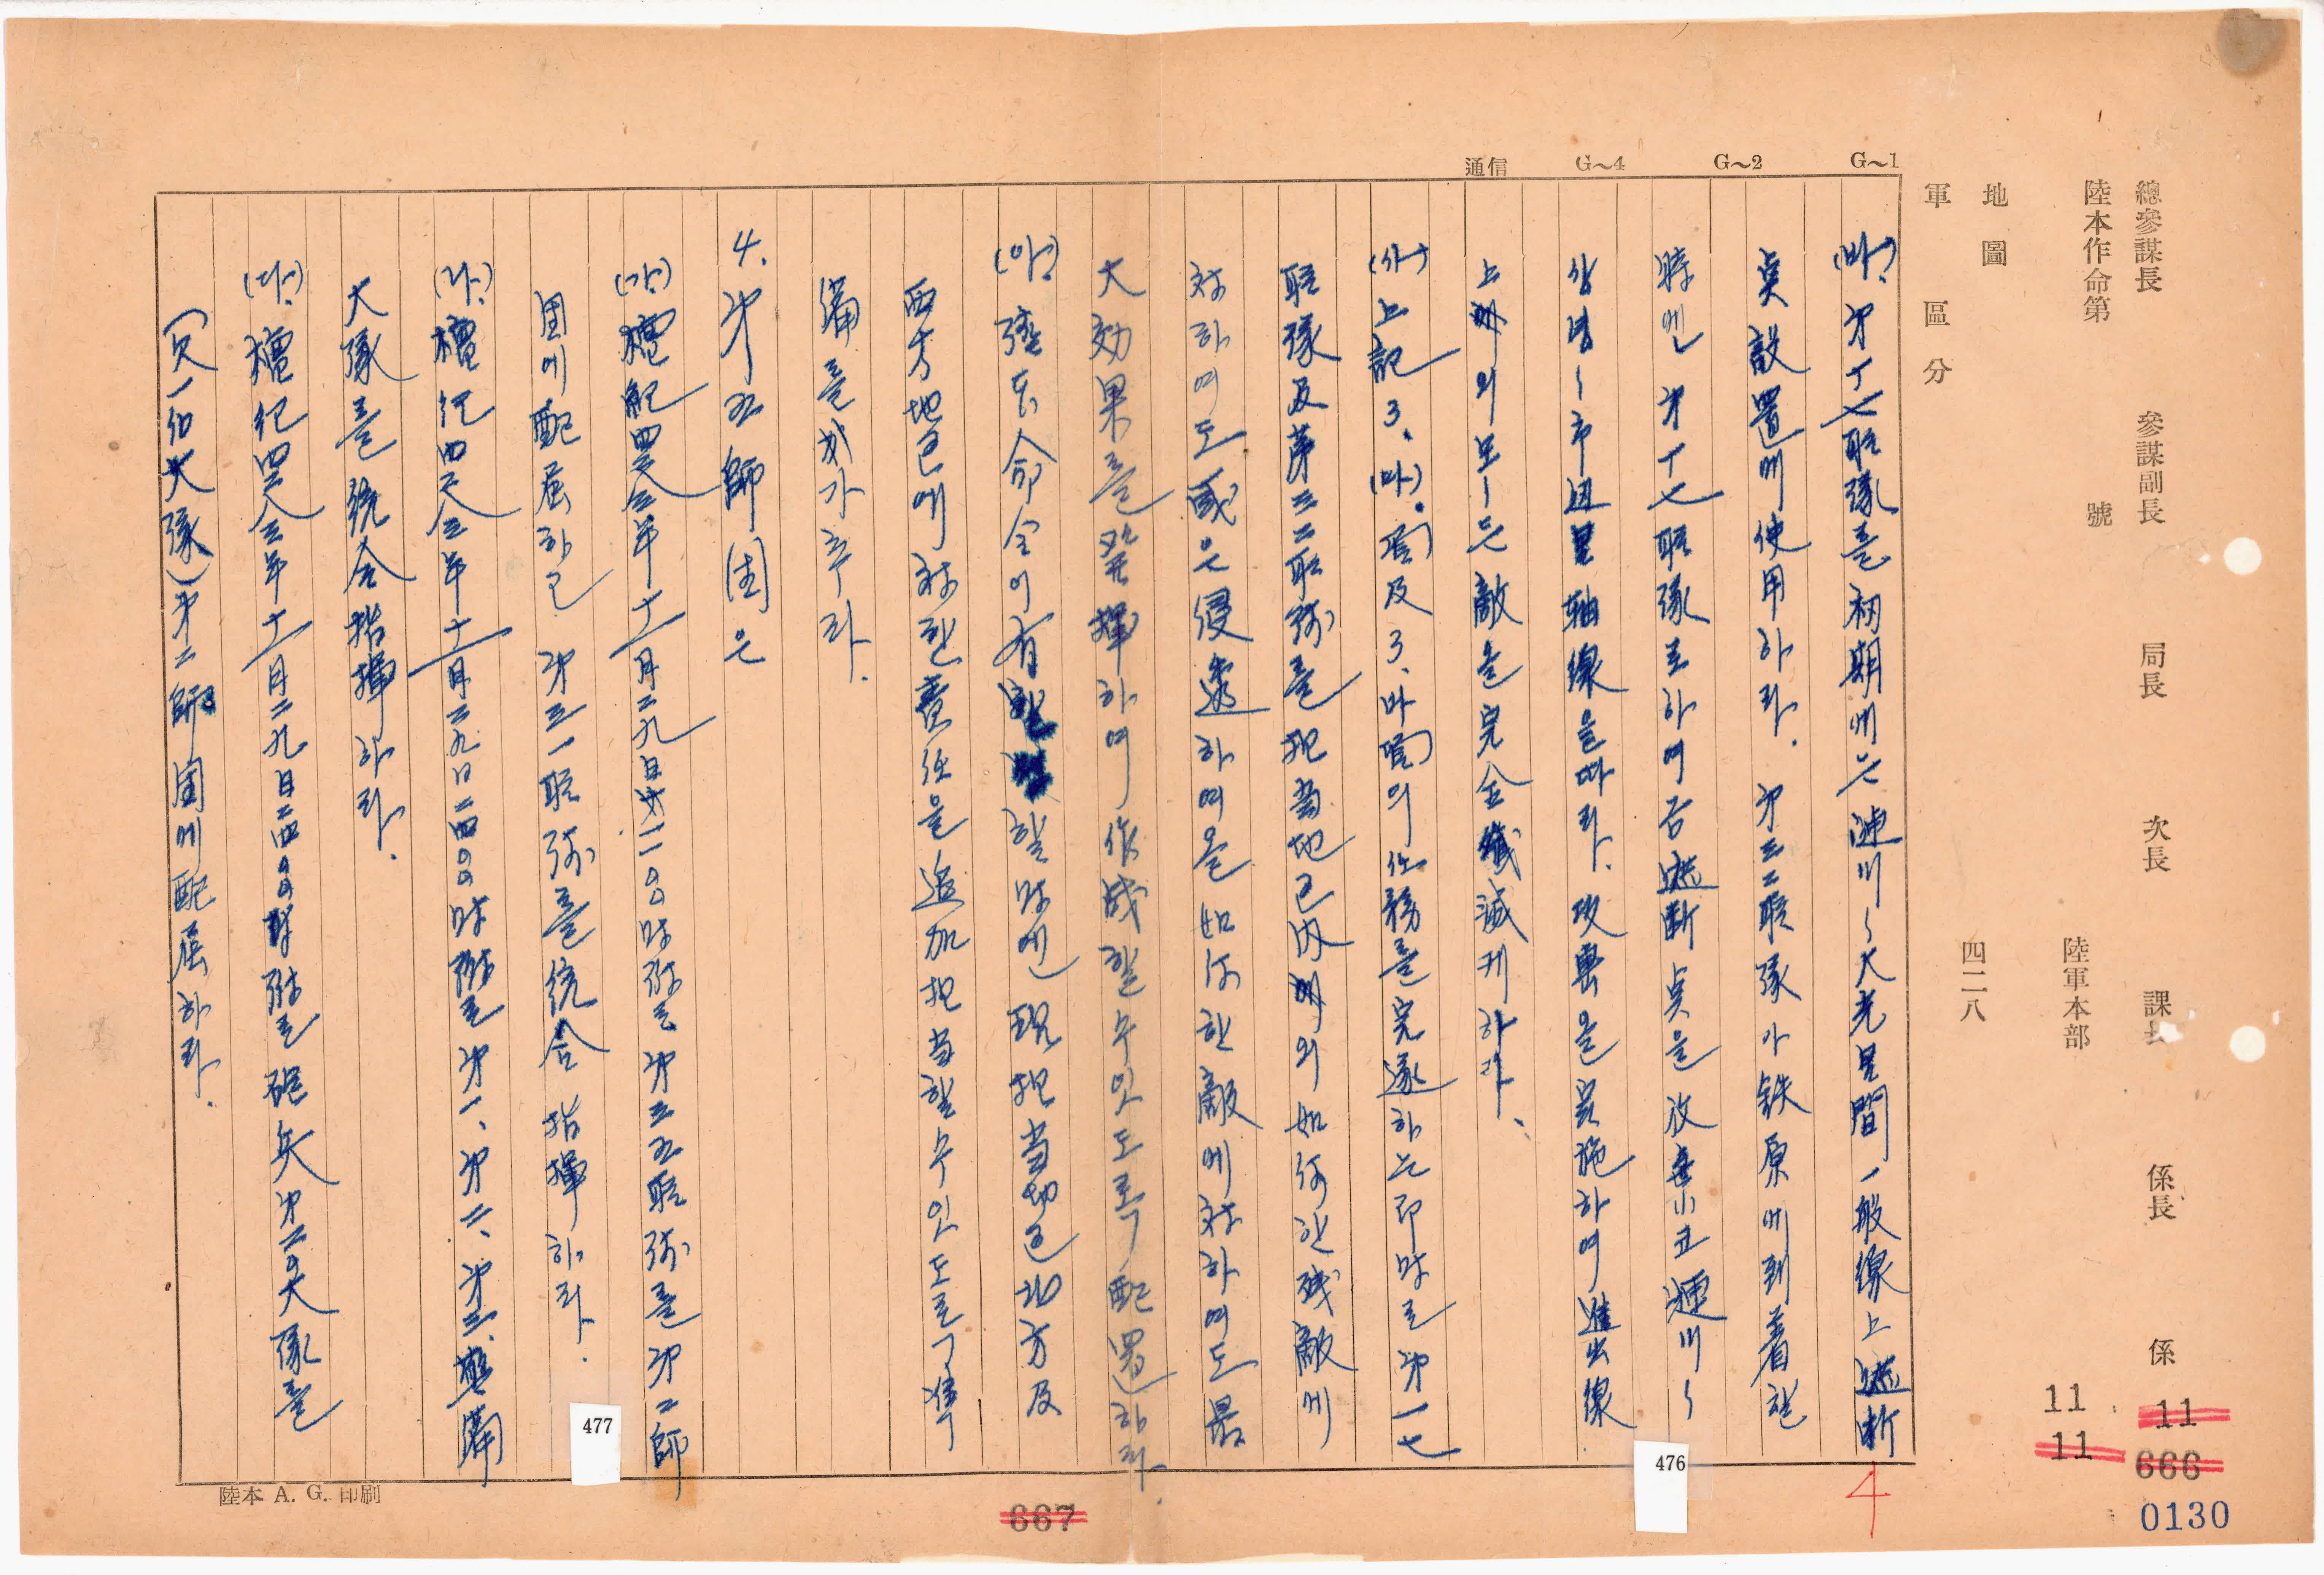 總參謀長 參謀副長 局長 次長 課長 係長 係
陸本作命第 號 陸軍本部
地圖 四二八
軍 區 分
G~1
G~2
G~4
通信
(바). 才十七联隊를 初期에는 漣川~大光里間 一般線上 遮断
奌 設置에 使用하라. 才三二联隊가 鉄原에 到着할
時엔 才十七联隊로하여금 遮断奌을 放棄하고 漣川~
市辺里 軸線을 따라. 攻撃을 実施하여 進出線
上에의 모ー든 敵을 完全 殲滅케하라.
(사) 上記 3. (마). 項 及 3. 바 項의 任務를 完遂하는 即時로 才一七
联隊 及 第三二联隊를 担当地区内에의 如何한 残敵에
対하여도 或은 侵透하여올 如何한 敵에 対하여도 最
大効果를 發揮하여 作战할수있도록 配置하라.
(아). 隨 命令이 有할时엔 現担当地区 北方 及
西方地区에 対한 責任을 追加担当할수있도록 準
備를 가추라.
4. 才五師団은
(가). 檀紀四二八三年十一月二九日 一二〇〇时부로 才三五联隊를 才二師
団에 配屈하고 才三一联隊를 統合 指揮하라.
(나). 檀紀四二八三年十一月二九日 二四〇〇时부로 才一、才二、才三、
大隊를 統合指揮하라.
(다). 檀紀四二八三年十一月二九日 二四〇〇부로 砲兵 才二〇大隊를
(欠一大隊) 才二師団에 配屈하라.
陸本 A. G. 印刷
476
477
666
667
11
11
11
4
0130